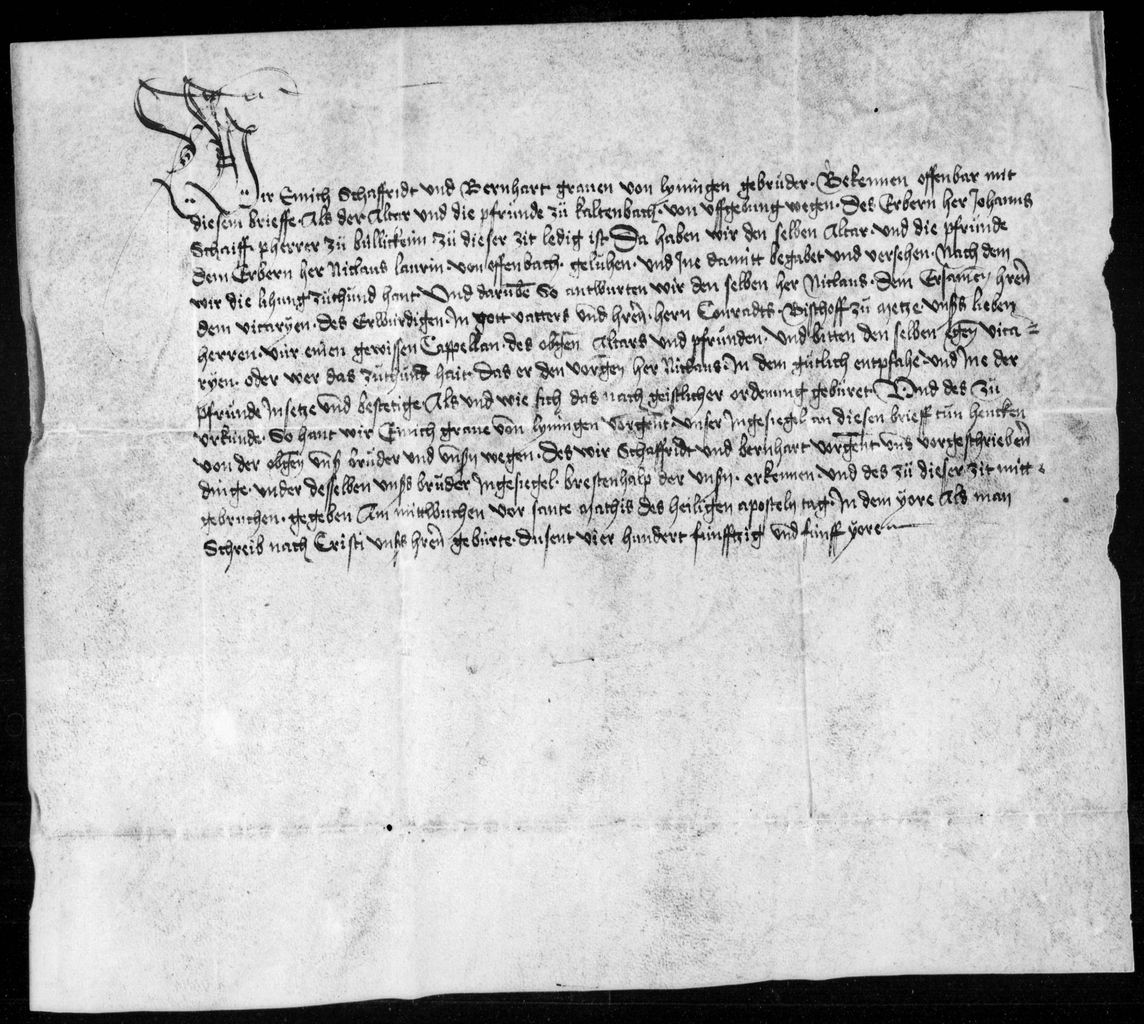 Wir Emich Schaffridt und Bernhart grauen von lyningen gebrüder · Bekennen offenbar mit
diesem brieffe · Als der Altar und die pfründe zü kaltenbach · von uffgebung wegen · Des Erbern her Johanns
Schaiff pherrer zü büllickeim zü dieser zit ledig ist Da haben wir den selben Altar · und die pfründe
dem Erbern her Niclaus laurin · von offenbach · gelühen · und Ine damitt begabet und versehen · Nach dem
wir die lihung züthünd hant · Und darübe So antwurten wir den selben her Niclaus · Dem Ersamen hren
dem vicaryen · des Erwürdigen · In gott vatters und hren · hern Conradts · Bischoff zü metze · unss lieben
herren · vür einen gewissen Cappellan · des obgen Altars und pfründen · und bitten den selben vica=
ryen · oder wer das zütünd hait · Das er den vorgen her Niclaus · In dem gütlich entpfahe · und Ine der
pfründe Insetze und bestetige Als und wie sich das nach geistlicher ordenung gebüret · Und des zü
urkünde · So hant wir Emich graue von lyningen vorgent · unser Ingesiegel an diesen brieff tün hencken
von der obgen uns brüder und unsn wegen · Des wir Schaffridt und bernhart vorgent uns vorgeschrieben
dinge · under desselben unss brüder Ingesiegel · brestenhalp der unsn · erkennen · und des zü dieser zit mitt=
gebruchen · gegeben Am mittwuchen vor sante mathis des heiligen aposteln tag · In dem yore Als man
Schreib nach Cristi unss hren gebürte · Dusent vier hundert fünfftzig und fünff yore